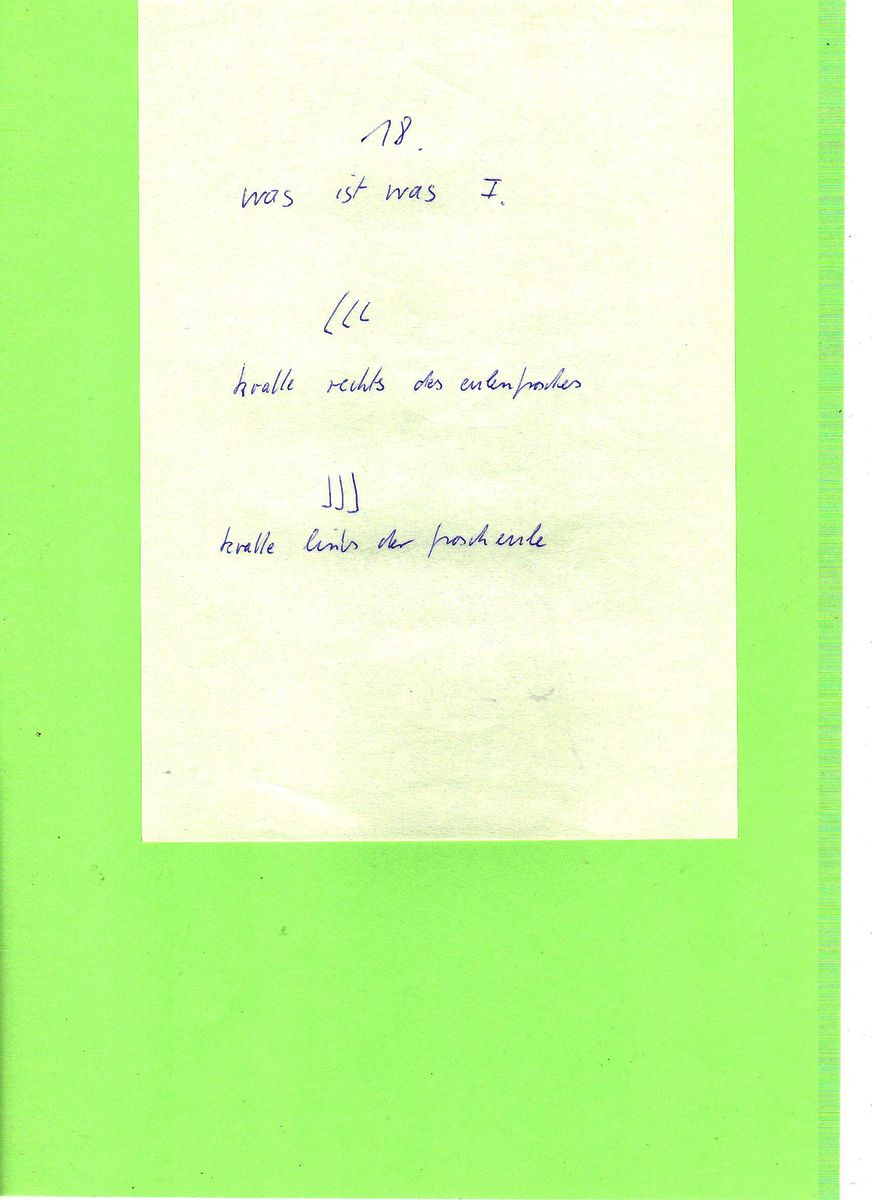 18.
was ist was I.
kralle rechts des eulenfrosches
kralle links der froscheule